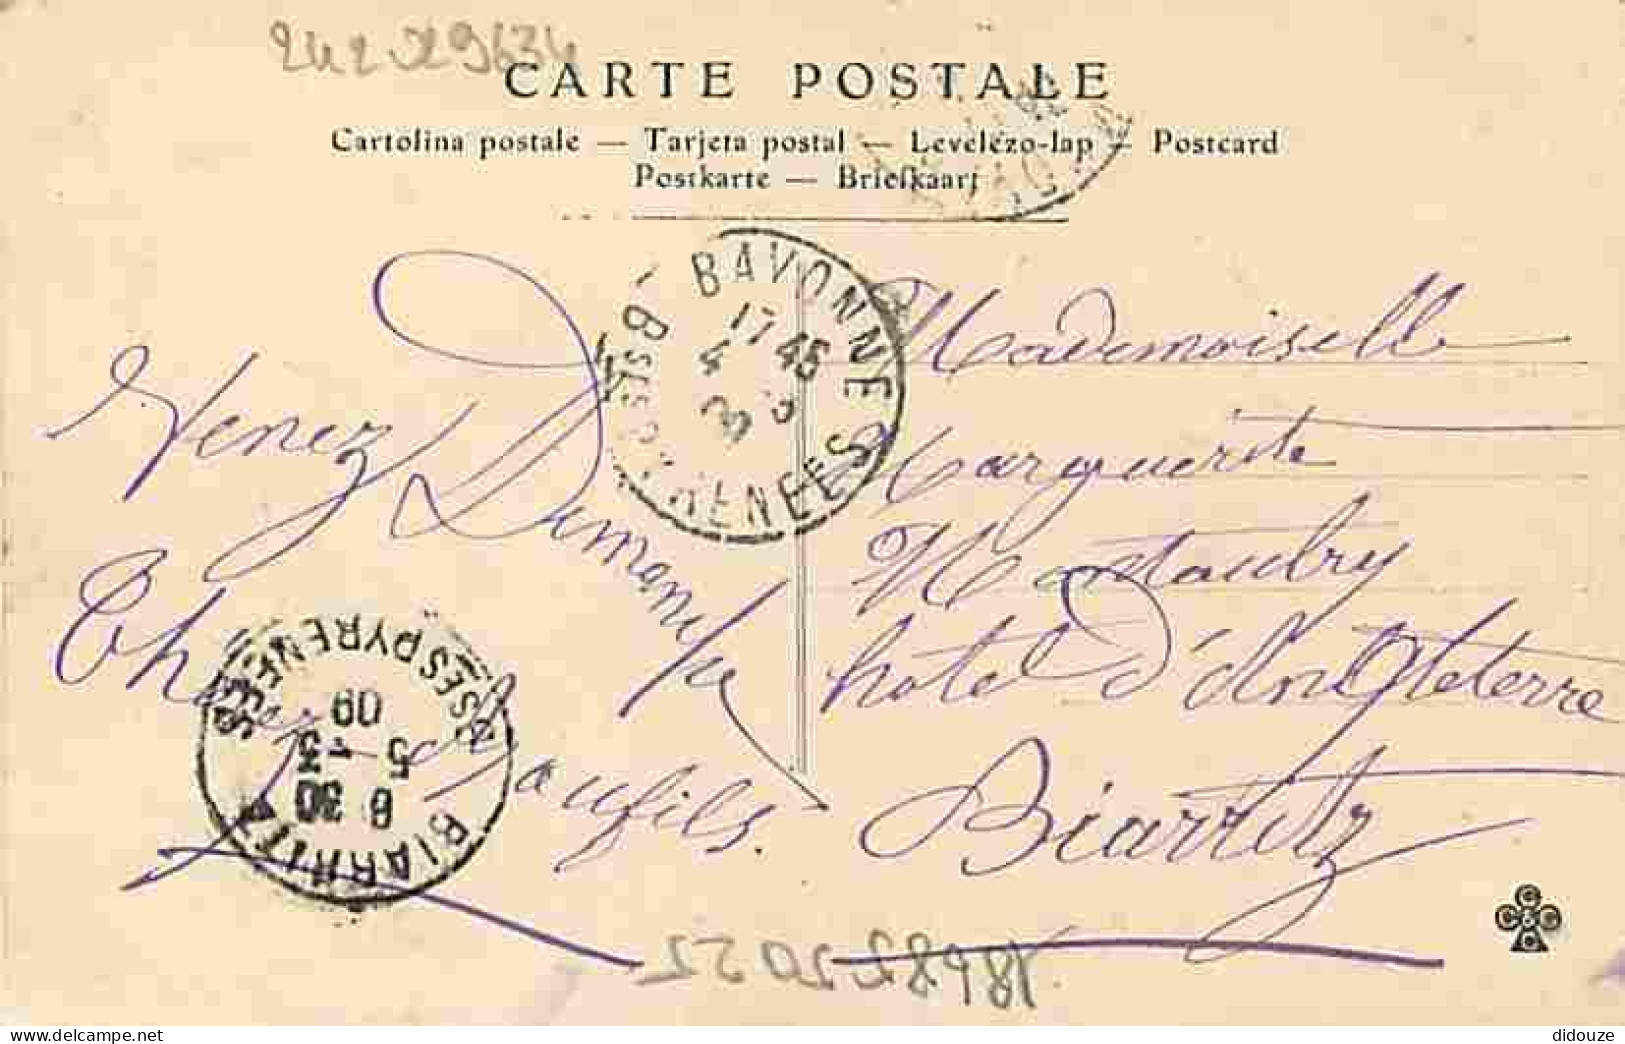 CARTE POSTALE
Cartolina postale — Tarjeta postal — Levelezo-lap — Postcard
Postkarte — Briefkaart
BAYONNE
17 45
BSES PYRENEES
Venez Dimanche
Chez Baufils.
Mademoiselle
Marguerite
Montaubry
hotel d'Angleterre
Biarritz
BIARRITZ
6 30
5 13
09
BSSES PYRENEES
CCCA
delcampe.net
didouze